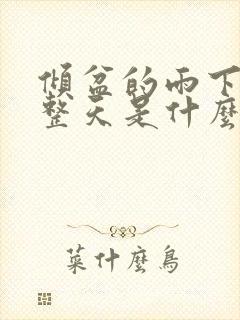 傾盆的雨下
整天是什麼
菜什麼鳥